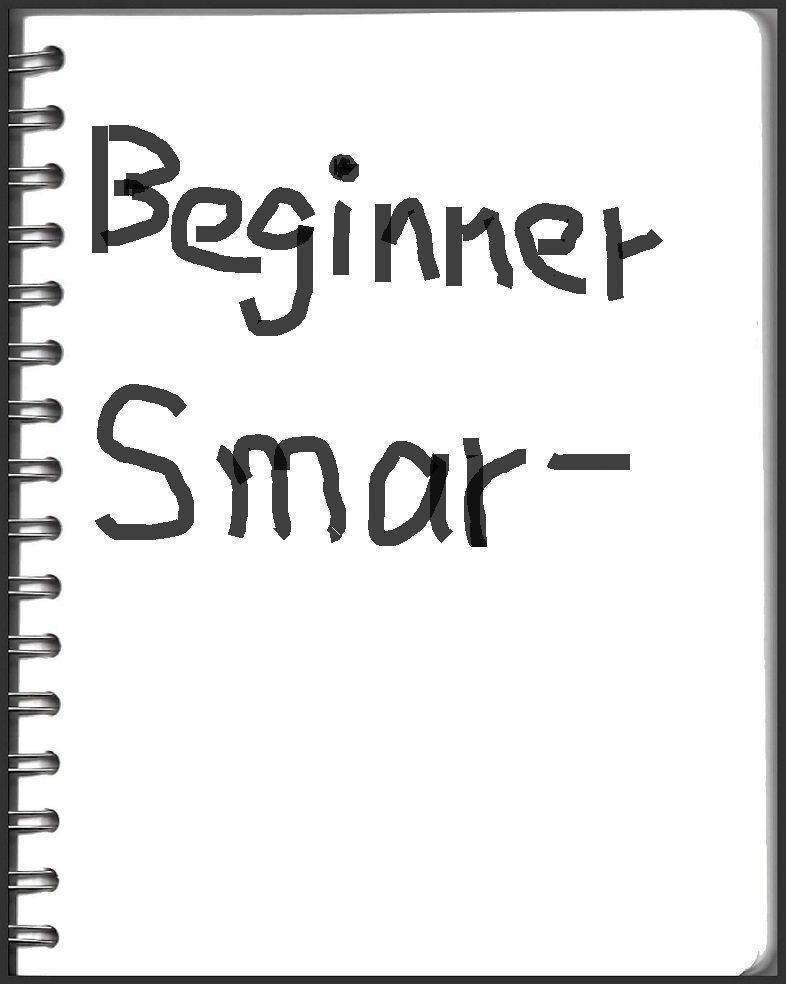 Beginner
Smar-